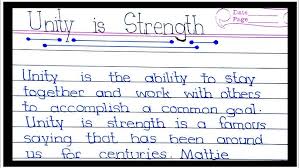 Unity is Strength
Date
Page
Unity is the ability to stay
together and work with others
to accomplish a common goal.
Unity is strength is a famous
saying that has been around
us for centuries. Mattie